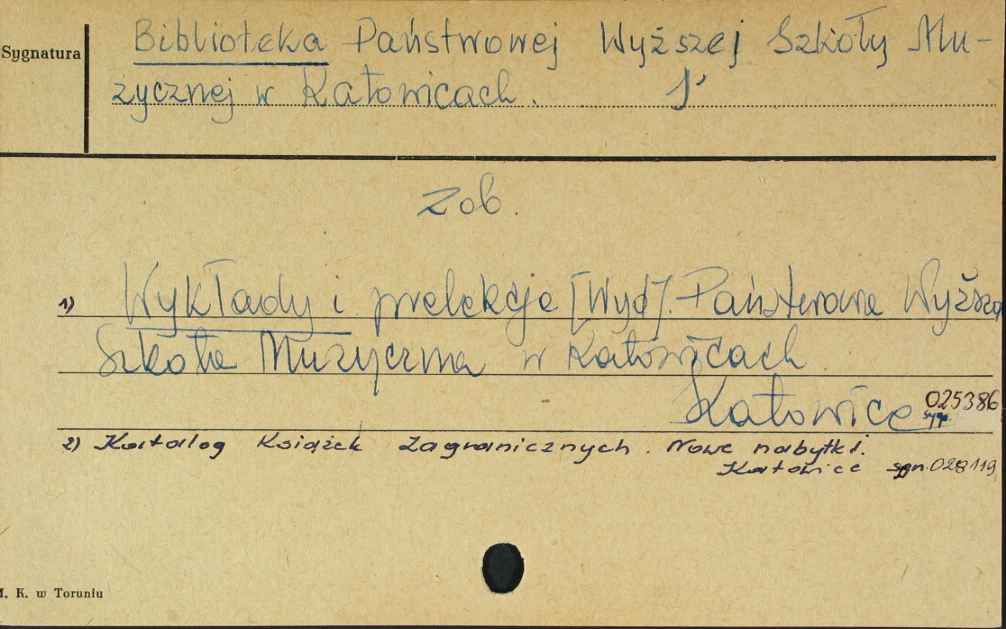 Sygnatura
Biblioteka Państwowej Wyższej Szkoły Mu-
zycznej w Katowicach.
Zob.
1) Wykłady i prelekcje [Wyd]. Państwowa Wyższa
Szkoła Muzyczna w Katowicach
Katowice 025386
syg.
2) Katalog Książek Zagranicznych. Nowe nabytki.
Katowice sgn. 028119
M. K. w Toruniu